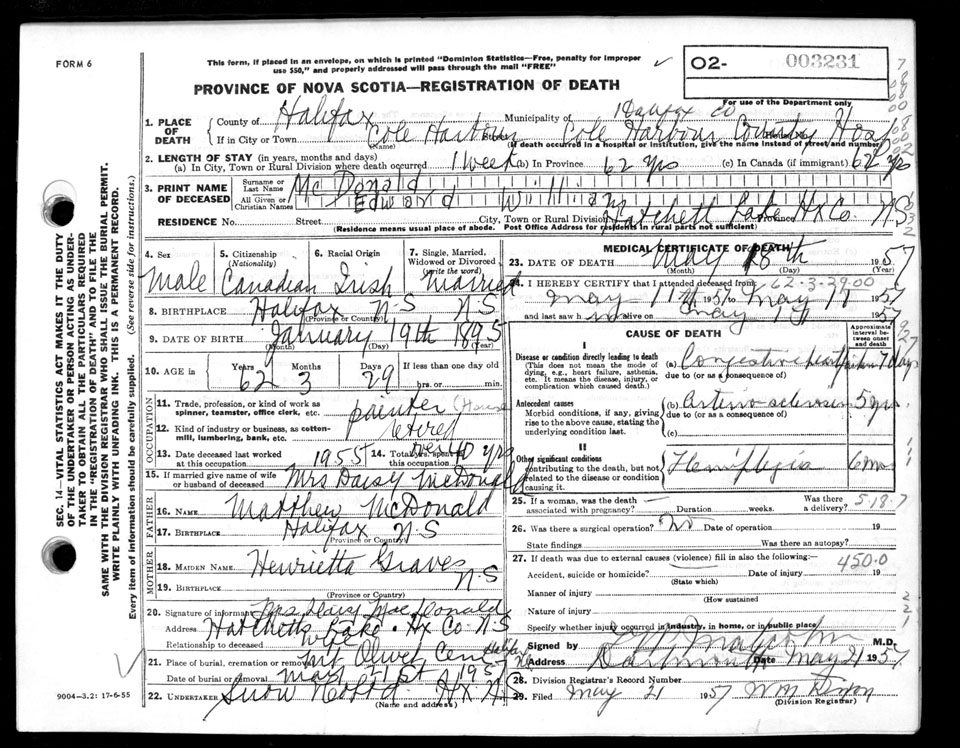 FORM 6
This form, if placed in an envelope, on which is printed "Dominion Statistics—Free, penalty for improper
use $50," and properly addressed will pass through the mail "FREE"
O2- 003231
PROVINCE OF NOVA SCOTIA—REGISTRATION OF DEATH
For use of the Department only
1. PLACE OF DEATH
County of Halifax Municipality of Halifax Co
If in City or Town Cole Harbour Street Cole Harbour County Hosp
(Name) (If death occurred in a hospital or institution, give the name instead of street and number)
2. LENGTH OF STAY (in years, months and days)
(a) In City, Town or Rural Division where death occurred 1 week (b) In Province 62 yrs (c) In Canada (if immigrant) 62 yrs
3. PRINT NAME OF DECEASED
Surname or Last Name Mc Donald
All Given or Christian Names Edward William
RESIDENCE No. Street City, Town or Rural Division Hatchett Lake Hx Co. N.S
(Residence means usual place of abode. Post Office Address for residents in rural parts not sufficient)
4. Sex Male
5. Citizenship (Nationality) Canadian
6. Racial Origin Irish
7. Single, Married, Widowed or Divorced (write the word) Married
8. BIRTHPLACE Halifax N-S N-S
(Province or Country)
9. DATE OF BIRTH January 19th 1895
(Month) (Day) (Year)
10. AGE in Years 62 Months 3 Days 29 If less than one day old hrs. or min.
OCCUPATION
11. Trade, profession, or kind of work as spinner, teamster, office clerk, etc. painter (House
12. Kind of industry or business, as cotton-mill, lumbering, bank, etc. retired
13. Date deceased last worked at this occupation 1955
14. Total yrs. spent in this occupation over 40 yrs
15. If married give name of wife or husband of deceased Mrs Daisy McDonald
FATHER
16. NAME Matthew McDonald
17. BIRTHPLACE Halifax N-S
(Province or Country)
MOTHER
18. MAIDEN NAME Henrietta Graves
19. BIRTHPLACE N-S
(Province or Country)
20. Signature of informant Mrs Daisy MacDonald
Address Hatchetts Lake. Hx Co N-S
Relationship to deceased wife
21. Place of burial, cremation or removal Mt Olivet Cem Halifax
Date of burial or removal May 21st 1957
22. UNDERTAKER Snow & Co Ltd Hx N.S
(Name and address)
MEDICAL CERTIFICATE OF DEATH
23. DATE OF DEATH May 18th 1957
(Month) (Day) (Year)
24. I HEREBY CERTIFY that I attended deceased from: 62-3-29.00
May 11th 1957 to May 18 1957
and last saw him alive on May 1957
CAUSE OF DEATH
Approximate interval between onset and death
I
Disease or condition directly leading to death
(This does not mean the mode of dying, e.g., heart failure, asthenia, etc. It means the disease, injury, or complication which caused death.)
(a) Congestive heart failure 7 days
due to (or as a consequence of)
Antecedent causes
Morbid conditions, if any, giving rise to the above cause, stating the underlying condition last.
(b) Arterio-sclerosis 5 yrs
due to (or as a consequence of)
(c)
II
Other significant conditions
contributing to the death, but not related to the disease or condition causing it.
Hemiplegia 6 mos
25. If a woman, was the death associated with pregnancy? Duration weeks. Was there a delivery? 5-18-7
26. Was there a surgical operation? No Date of operation 19
State findings Was there an autopsy?
27. If death was due to external causes (violence) fill in also the following:
450.0
Accident, suicide or homicide? Date of injury 19
(State which)
Manner of injury
(How sustained
Nature of injury
Specify whether injury occurred in industry, in home, or in public place
Signed by Malcolm M.D.
Address Dartmouth Date May 21 1957
28. Division Registrar's Record Number
29. Filed May 21 1957 W M Dixon
(Division Registrar)
SEC. 14—VITAL STATISTICS ACT MAKES IT THE DUTY
OF THE UNDERTAKER OR PERSON ACTING AS UNDER-
TAKER TO OBTAIN ALL THE PARTICULARS REQUIRED
IN THE "REGISTRATION OF DEATH" AND TO FILE THE
SAME WITH THE DIVISION REGISTRAR WHO SHALL ISSUE THE BURIAL PERMIT.
WRITE PLAINLY WITH UNFADING INK. THIS IS A PERMANENT RECORD.
Every item of information should be carefully supplied. (See reverse side for instructions.)
9004-3.2: 17-6-55